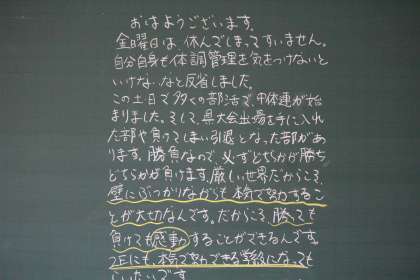 おはようございます。
金曜日は、休んでしまってすいません。
自分自身も体調管理を気をつけないと
いけないなと反省しました。
この土日で多くの部活で、中体連が始
まりました。そして、県大会出場を手に入れ
た部や負けてしまい引退となった部があ
ります。勝負なので、必ずどちらかが勝ち
どちらかが負けます。厳しい世界だからこそ、
壁にぶつかりながらも本気で努力するこ
とが大切なんです。だからこそ、勝っても
負けても感動することができるんです。
2Eにも、本気で努力できる学級になっても
らいたいです。